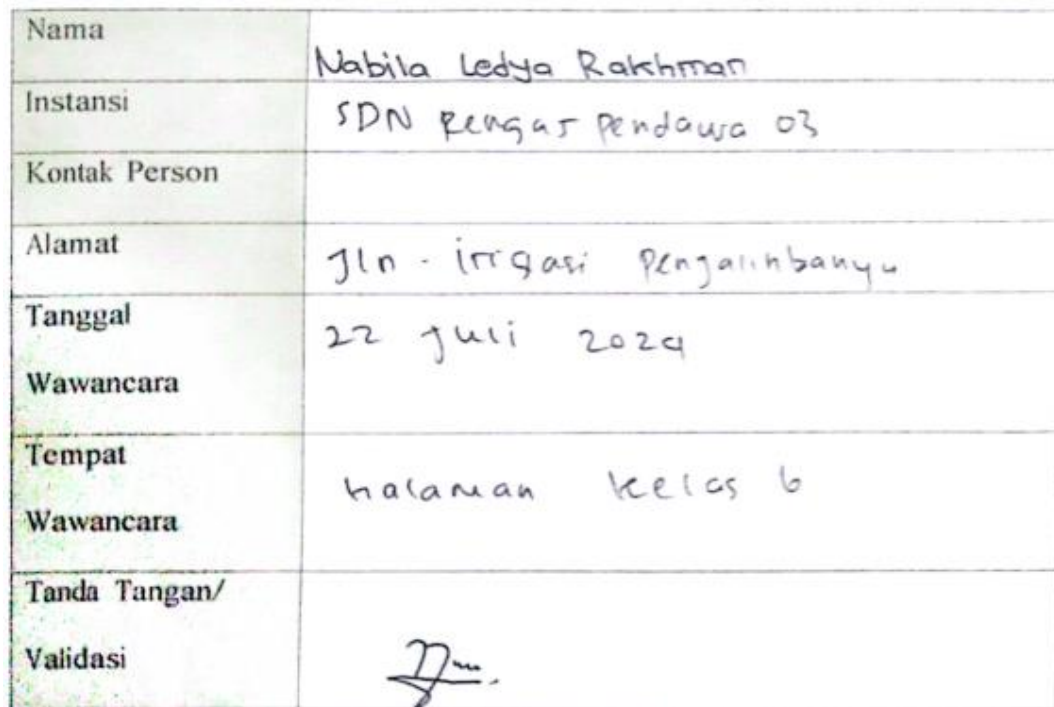 Nama
Nabila Ledya Rakhman
Instansi
SDN Rengas pendawa 03
Kontak Person
Alamat
Jln - irigasi
Tanggal
Wawancara
22 juli 2024
Tempat
Wawancara
halaman kelas 6
Tanda Tangan/
Validasi